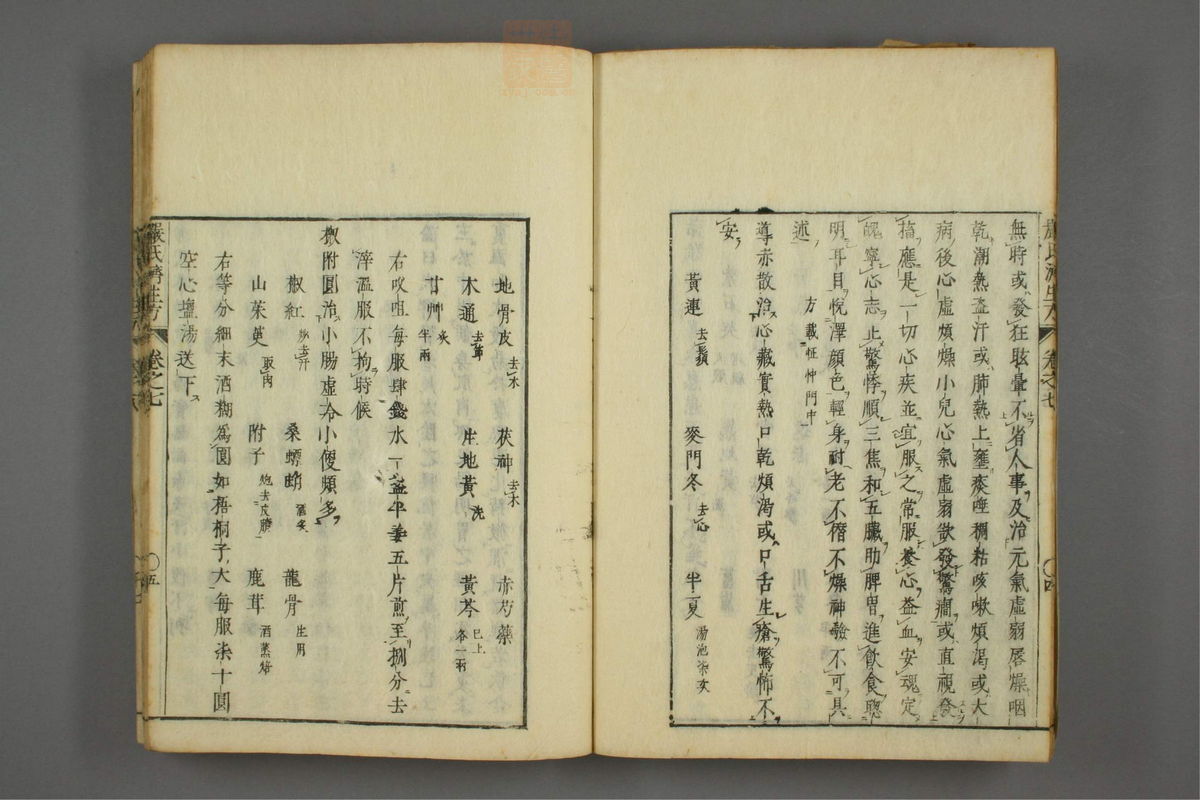 無時或發狂眩暈不省人事及治元氣虛弱唇燥咽
乾潮熱盜汗或肺熱上壅痰唾稠粘咳嗽煩渴或大
病後心虛煩燥小兒心氣虛弱欲發驚癇或直視發
搐應是一切心疾並宜服之常服養心益血安魂定
魄寧心志止驚悸順三焦和五臟助脾胃進飲食聰
明耳目悅澤顔色輕身耐老不僭不燥神驗不可具
述
方載怔忡門中
導赤散治心藏實熱口乾煩渴或口舌生瘡驚怖不
安
黃連去鬚 麥門冬去心 半夏湯泡柒次
嚴氏濟生方 卷之七 〇四
地骨皮去木 茯神去木 赤芍藥
木通去節 生地黃洗 黃芩已上各一兩
甘艸炙半兩
右㕮咀每服肆錢水一盞半姜五片煎至捌分去
滓溫服不拘時候
椒附圓治小腸虛冷小便頻多
椒紅炒去汗 桑螵蛸酒炙 龍骨生用
山茱萸取肉 附子炮去皮臍 鹿茸酒蒸焙
右等分細末酒糊爲圓如梧桐子大每服柒十圓
空心鹽湯送下
嚴氏濟生方 卷之七 〇五